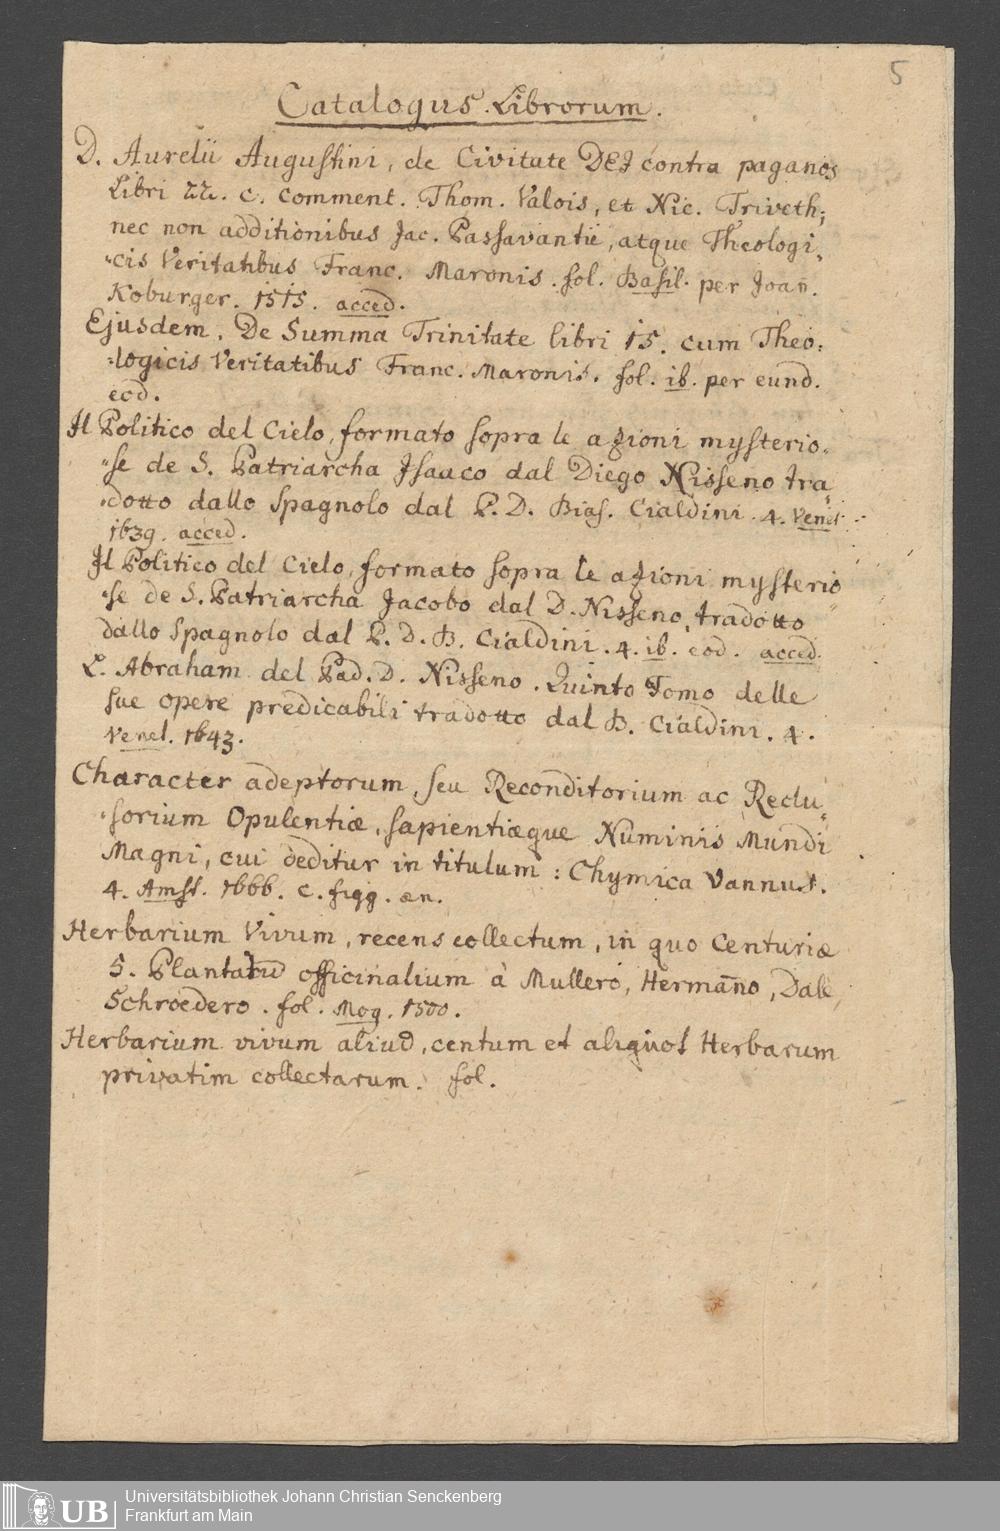 5
Catalogus Librorum.
D. Aurelii Augustini, de Civitate DEI contra paganos
Libri 22. c. comment. Thom. Valois, et Nic. Triveth;
nec non additionibus Jac. Passavantii, atque Theologi„
„cis Veritatibus Franc. Maronis. fol. Basil. per Joan̄.
Koburger. 1515. acced.
Ejusdem. De Summa Trinitate libri 15. cum Theo:
:logicis Veritatibus Franc. Maronis. fol. ib. per eund.
eod.
Il Politico del Cielo, formato sopra le azioni mysterio„
„se de S. Patriarcha Isaaco dal Diego Nisseno tra„
„dotto dallo Spagnolo dal P. D. Bias. Cialdini. 4. Venet.
1639. acced.
Il Politico del Cielo, formato sopra le azioni mysterio„
„se de S. Patriarcha Jacobo dal D. Nisseno, tradotto
dallo Spagnolo dal P. D. B. Cialdini. 4. ib. eod. acced.
L. Abraham del Pad. D. Nisseno. Quinto Tomo delle
sue opere predicabili tradotto dal B. Cialdini. 4.
Venet. 1643.
Character adeptorum, seu Reconditorium ac Reclu„
„sorium Opulentiæ, sapientiæque Numinis Mundi
Magni, cui deditur in titulum: Chymica Vannus.
4. Amst. 1666. c. figg. æn.
Herbarium Vivum, recens collectum, in quo Centuriæ
5. Plantarū officinalium à Mullero, Herman̄o, Dale,
Schroedero. fol. Mog. 1500.
Herbarium vivum aliud, centum et aliquot Herbarum
privatim collectarum. fol.
UB
Universitätsbibliothek Johann Christian Senckenberg
Frankfurt am Main